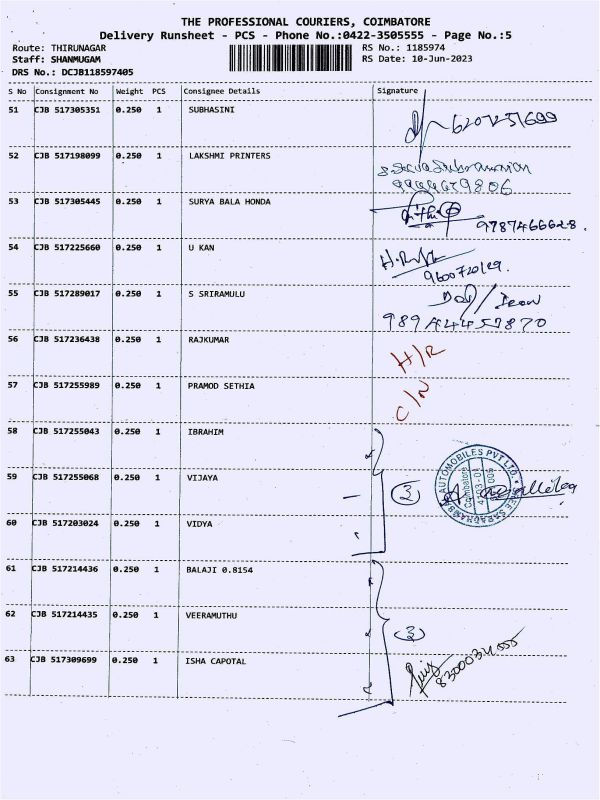 THE PROFESSIONAL COURIERS, COIMBATORE
Delivery Runsheet - PCS - Phone No.:0422-3505555 - Page No.:5
Route: THIRUNAGAR RS No.: 1185974
Staff: SHANMUGAM RS Date: 10-Jun-2023
DRS No.: DCJB118597405
S No Consignment No Weight PCS Consignee Details Signature
51 CJB 517305351 0.250 1 SUBHASINI
52 CJB 517198099 0.250 1 LAKSHMI PRINTERS
53 CJB 517305445 0.250 1 SURYA BALA HONDA
9787466628.
54 CJB 517225660 0.250 1 U KAN
55 CJB 517289017 0.250 1 S SRIRAMULU
56 CJB 517236438 0.250 1 RAJKUMAR H/R
57 CJB 517255989 0.250 1 PRAMOD SETHIA C/N
58 CJB 517255043 0.250 1 IBRAHIM
59 CJB 517255068 0.250 1 VIJAYA 3
60 CJB 517203024 0.250 1 VIDYA
61 CJB 517214436 0.250 1 BALAJI 0.8154
62 CJB 517214435 0.250 1 VEERAMUTHU 3
63 CJB 517309699 0.250 1 ISHA CAPOTAL